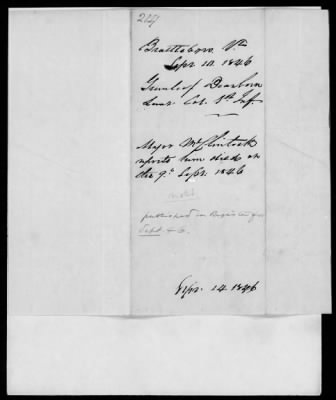 Brattleboro Vt
Sept 10. 1846
Greenleaf Dearborn
Lieut Col. Inf.
Major McClintock
reports him died on
the 9th Sept. 1846
noted
published in Register for
Sept 46.
Sept. 14 1846